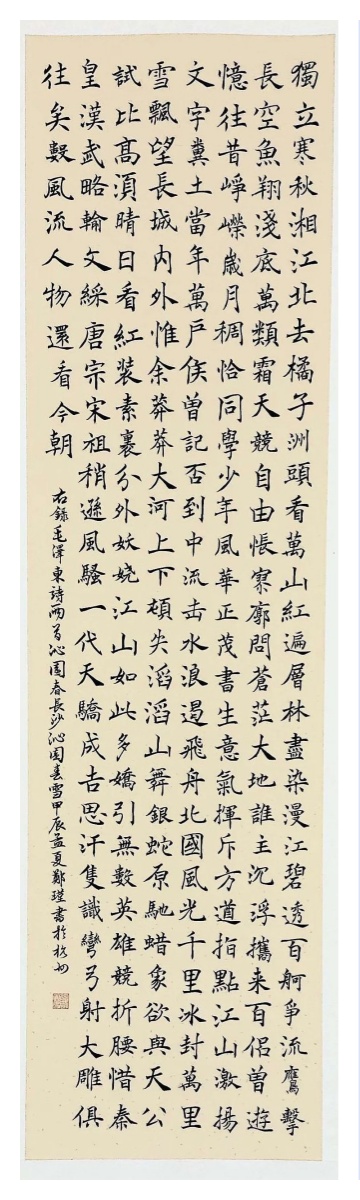 獨立寒秋湘江北去橘子洲頭看萬山紅遍層林盡染漫江碧透百舸爭流鷹擊
長空魚翔淺底萬類霜天競自由悵寥廓問蒼茫大地誰主沉浮攜来百侶曾遊
憶往昔崢嶸歲月稠恰同學少年風華正茂書生意氣揮斥方遒指點江山激揚
文字糞土當年萬戶侯曾記否到中流击水浪遏飛舟北國風光千里冰封萬里
雪飄望長城內外惟余莽莽大河上下頓失滔滔山舞銀蛇原馳蜡象欲與天公
試比髙須晴日看紅装素裹分外妖嬈江山如此多嬌引無數英雄競折腰惜秦
皇漢武略輸文綵唐宗宋祖稍遜風騷一代天驕成吉思汗隻識彎弓射大雕俱
往矣數風流人物還看今朝
右録毛澤東詩兩首沁園春長沙沁園春雪甲辰孟夏鄭書於